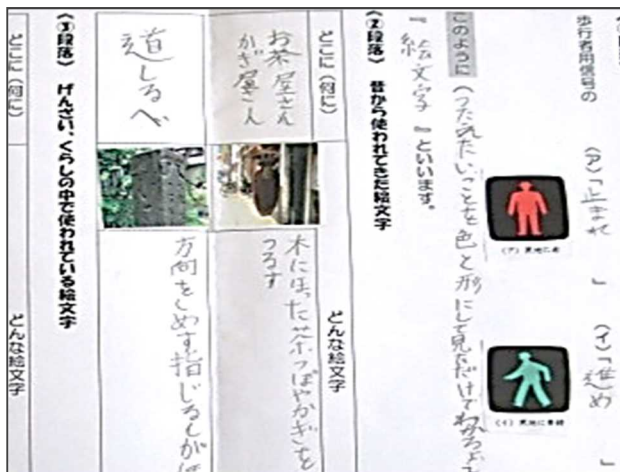 歩行者用信号の
(ア)「止まれ」
(イ)「進め」
このように (つたえたいことを色と形にして見ただけでわかる
『絵文字』といいます。
《②段落》 昔から使われてきた絵文字
どこに(何に)
どんな絵文字
お茶屋さん
かぎ屋さん
木にほった茶つぼやかぎを
つるす
道しるべ
方向をしめす指じるしが
《③段落》 げんざい、くらしの中で使われている絵文字
どこに(何に)
どんな絵文字